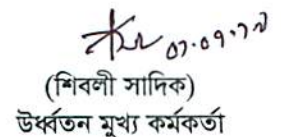 ০৭.০৭.২৫
(শিবলী সাদিক)
উর্ধ্বতন মুখ্য কর্মকর্তা